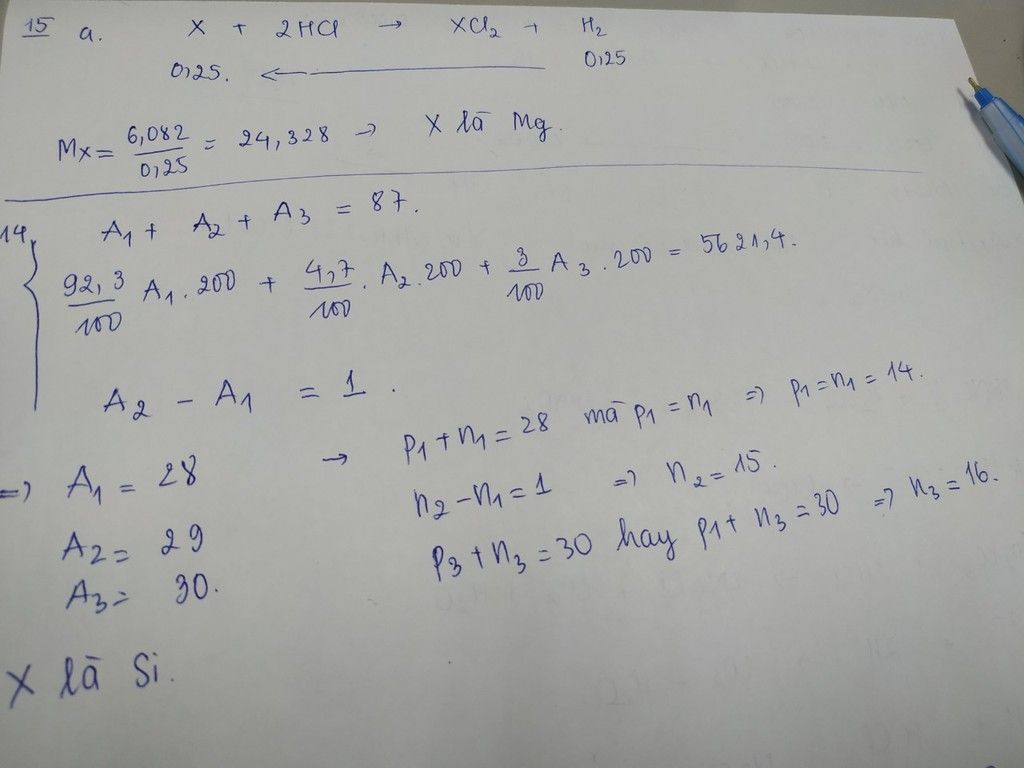 15 a. X + 2HCl → XCl₂ + H₂
0,25. ← 0,25
Mx = 6,082/0,25 = 24,328 → X là Mg.
14, A₁ + A₂ + A₃ = 87.
92,3/100 A₁ . 200 + 4,7/100 . A₂ . 200 + 3/100 A₃ . 200 = 5621,4.
A₂ - A₁ = 1.
=> A₁ = 28 → p₁ + n₁ = 28 mà p₁ = n₁ => p₁ = n₁ = 14.
n₂ - n₁ = 1 => n₂ = 15.
A₂ = 29
p₃ + n₃ = 30 hay p₁ + n₃ = 30 => n₃ = 16.
A₃ = 30.
X là Si.